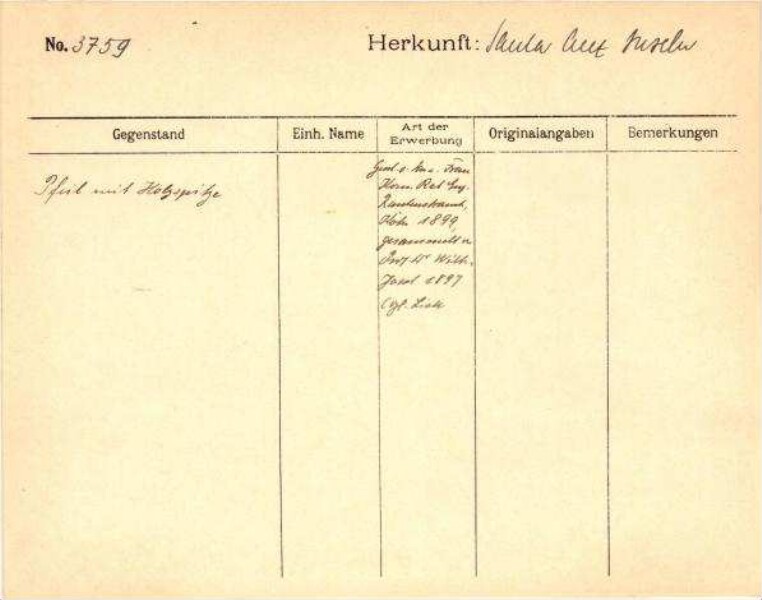 No. 3759 Herkunft: Santa Cruz Inseln
Gegenstand
Einh. Name
Art der
Erwerbung
Originalangaben
Bemerkungen
Pfeil mit Holzspitze
Frau
Kom. Rat Eug.
Rautenstrauch,
Köln 1899,
gesammelt v.
Prof. Dr Wilh.
Joest 1897
(vgl. Liste